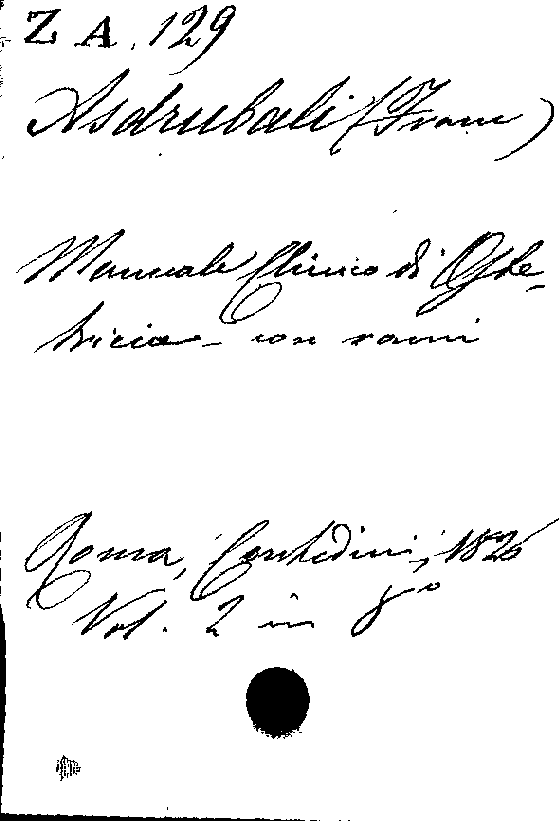 Z A. 129
Asdrubali (Franc)
Manuale Clinico di Oste-
tricia - con rami
Roma, Contedini, 1826
Vol. 2 in 8º